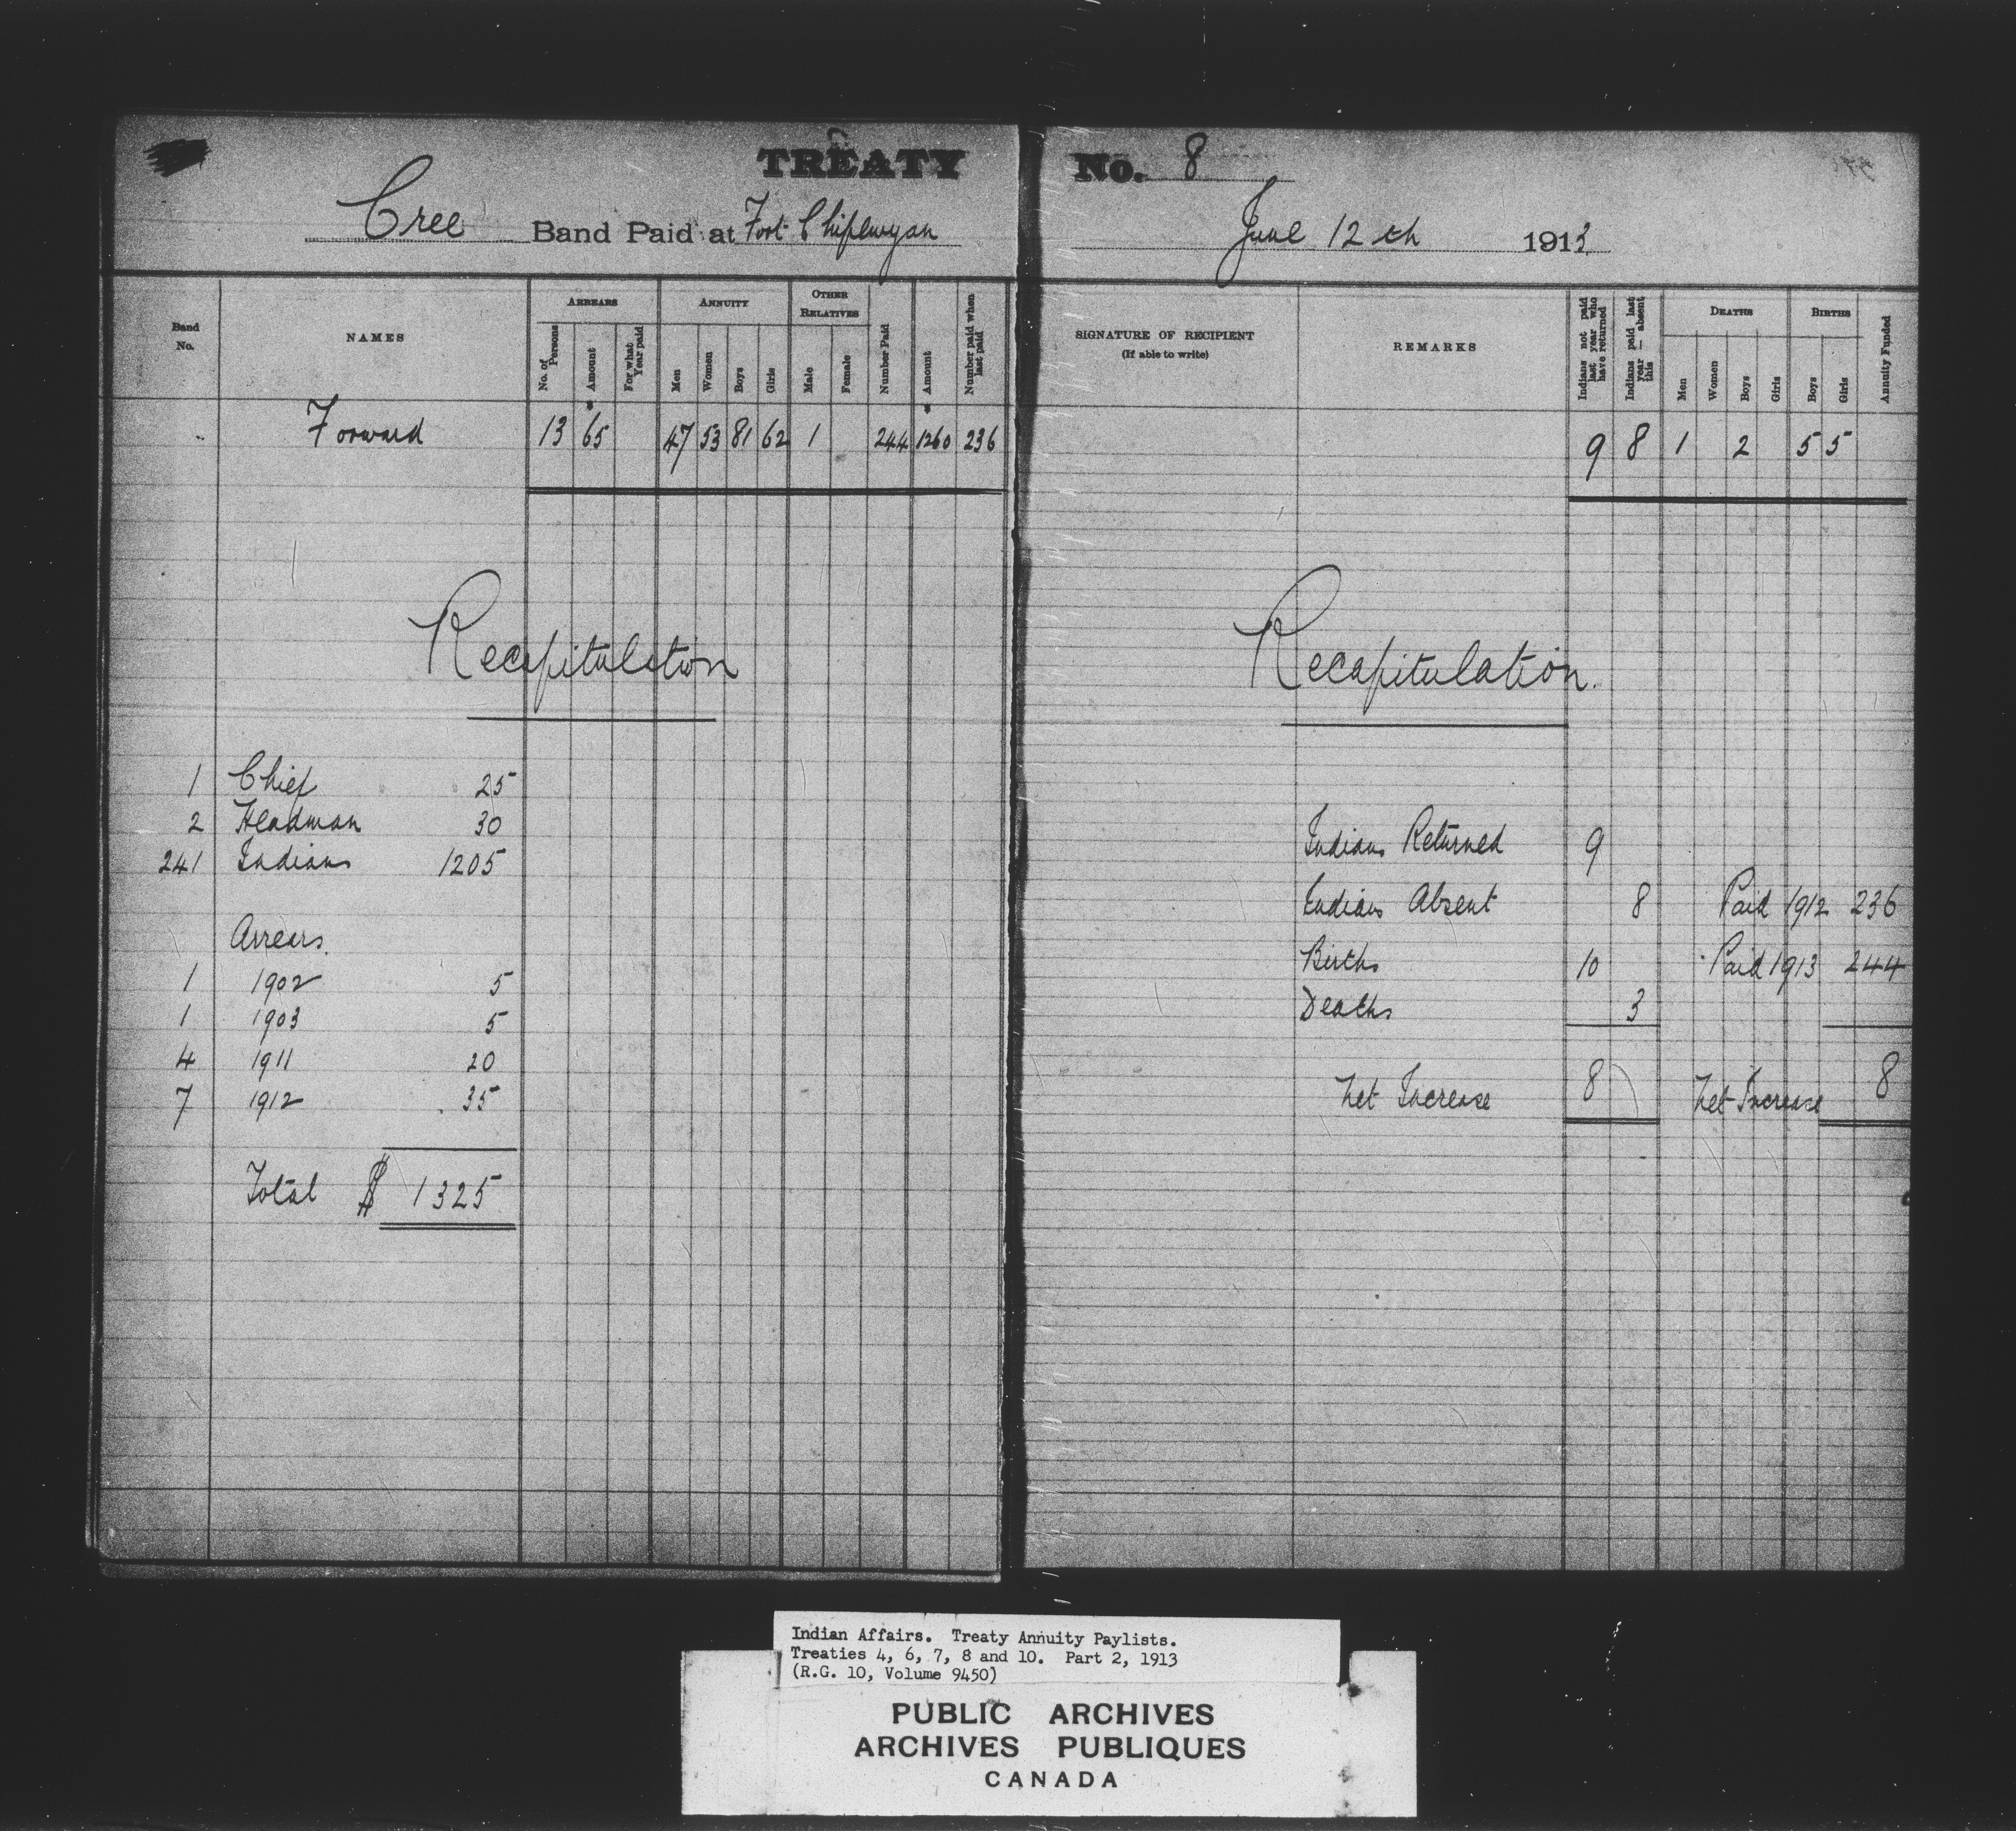 TREATY No. 8
Cree Band Paid at Fort Chipewyan June 12th 1913
Band No.
NAMES
ARREARS
No. of Persons
Amount
For what Year paid
ANNUITY
Men
Women
Boys
Girls
OTHER RELATIVES
Male
Female
Number Paid
Amount
Number paid when last paid
SIGNATURE OF RECIPIENT
(If able to write)
REMARKS
Indians not paid last year who have returned
Indians paid last year — absent this
DEATHS
Men
Women
Boys
Girls
BIRTHS
Boys
Girls
Annuity Funded
Forward 13 65 47 53 81 62 1 244 1260 236 9 8 1 2 5 5
Recapitulation
1 Chief 25
2 Headman 30
241 Indians 1205
Arrears
1 1902 5
1 1903 5
4 1911 20
7 1912 35
Total $ 1325
Recapitulation.
Indians Returned 9
Indians Absent 8 Paid 1912 236
Births 10 Paid 1913 244
Deaths 3
Net Increase 8 Net Increase 8
Indian Affairs. Treaty Annuity Paylists.
Treaties 4, 6, 7, 8 and 10. Part 2, 1913
(R.G. 10, Volume 9450)
PUBLIC ARCHIVES
ARCHIVES PUBLIQUES
CANADA